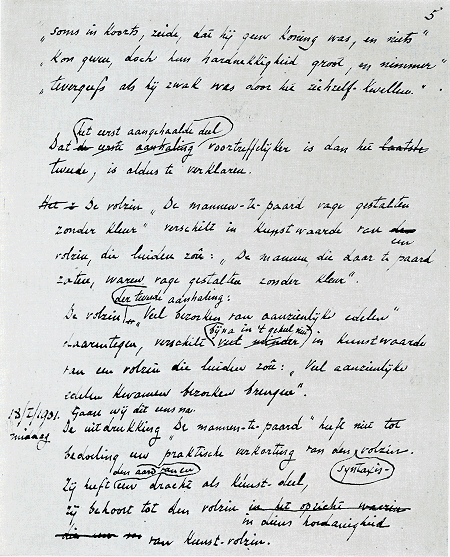 5
„soms in koorts, zeide, dat hij geen koning was, en niets"
„kon geven, doch hun hardnekkigheid groot, en nimmer"
„tevergeefs als hij zwak was door het zichzelf-kwellen."
het eerst aangehaalde deel
Dat de eerste aanhaling voortreffelijker is dan het laatste
tweede, is aldus te verklaren.
Het is De volzin „De mannen-te-paard vage gestalten
zonder kleur" verschilt in kunstwaarde van den
een
volzin, die luiden zoû: „De mannen die daar te paard
zaten, waren vage gestalten zonder kleur".
der tweede aanhaling:
De volzin „Veel bezoeken van aanzienlijke edelen"
daarentegen, verschilt veel minder in kunstwaarde
bijna in 't geheel niet
van een volzin die luiden zoû: „Veel aanzienlijke
edelen kwamen bezoeken brengen".
18/I/1931. Gaan wij dit eens na.
middag
De uitdrukking „De mannen-te-paard" heeft niet tot
bedoeling een praktische verkorting van den volzin.
den aard van een syntaxis.
Zij heeft een dracht als kunst-deel,
zij behoort tot den volzin in het opzicht waarin
in diens hoedanigheid
van kunst-volzin.